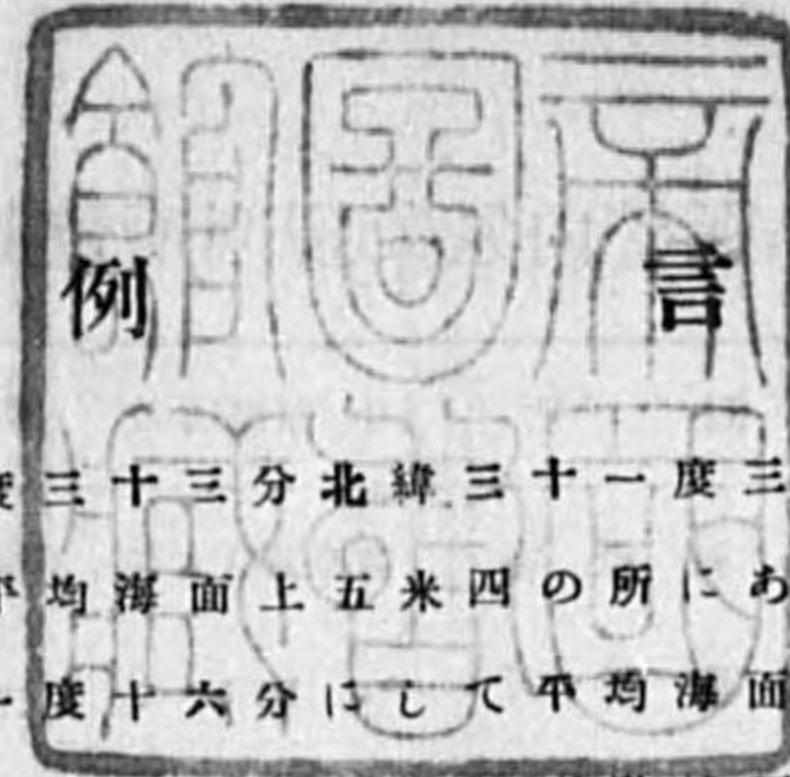 帝國
圖書
館藏
例言
度三十三分北緯三十一度三
平均海面上五米四の所にあ
一度十六分にして平均海面